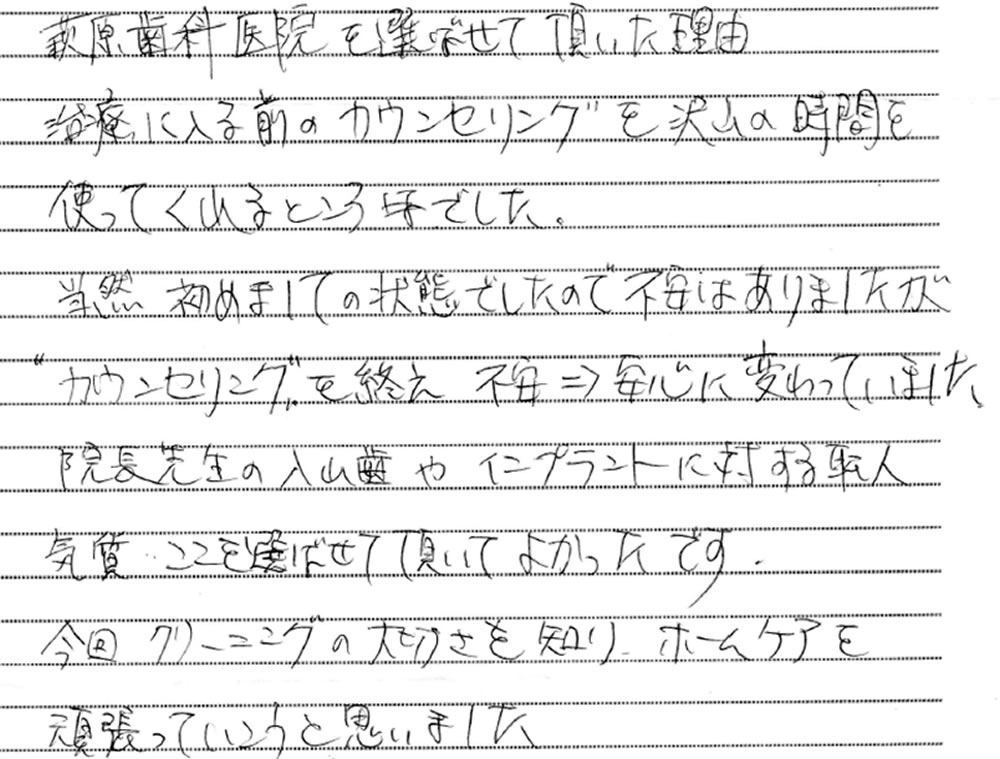 萩原歯科医院を選ばせて頂いた理由
治療に入る前のカウンセリング"を沢山の時間を
使ってくれるところ等でした。
当然 初めましての状態でしたので不安はありましたが
“カウンセリング”を終え 不安⇒安心に変わっていました
院長先生の入れ歯やインプラントに対する職人
気質、ここを選ばせて頂いてよかったです.
今回 クリーニングの大切さを知り ホームケアを
頑張っていこうと思いました